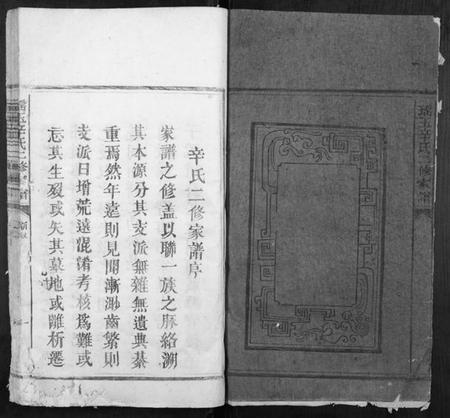 辛氏二修家譜序
家譜之修蓋以聯一族之脈絡溯
其本源分其支派無雜無遺典綦
重焉然年遠則見聞漸渺齒繁則
支派日增荒遠混淆考核爲難或
忘其生歿或失其墓地或離析遷
辛氏二修